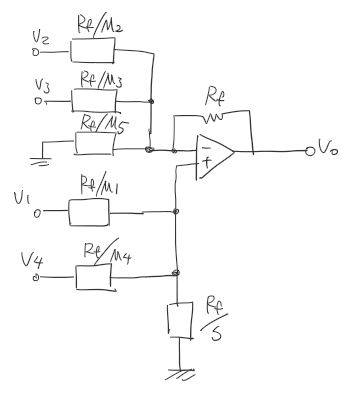 V2
Rf/M2
V3
Rf/M3
Rf/M5
Rf
−
+
Vo
V1
Rf/M1
V4
Rf/M4
Rf/S